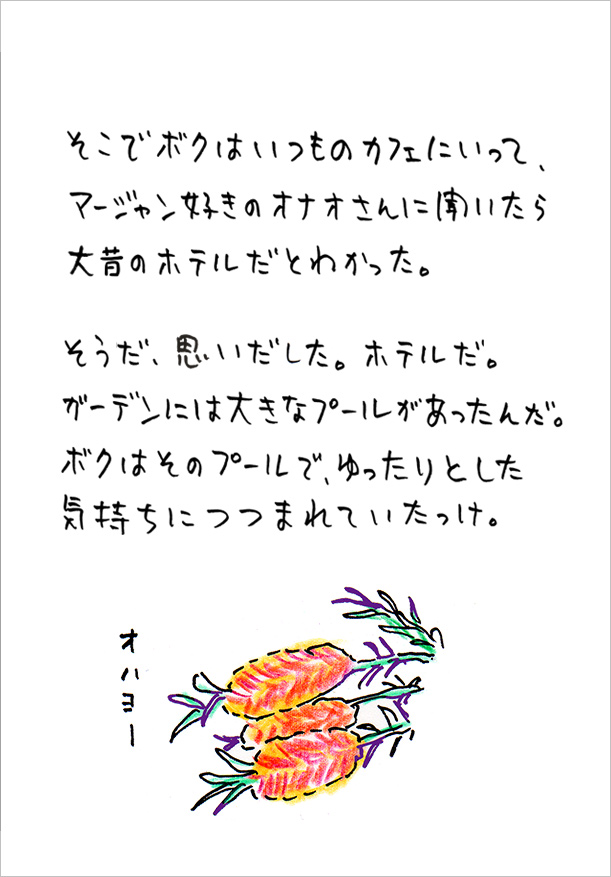 そこでボクはいつものカフェにいって、
マージャン好きのオナオさんに聞いたら
大昔のホテルだとわかった。
そうだ、思いだした。ホテルだ。
ガーデンには大きなプールがあったんだ。
ボクはそのプールで、ゆったりとした
気持ちにつつまれていたっけ。
オハヨー